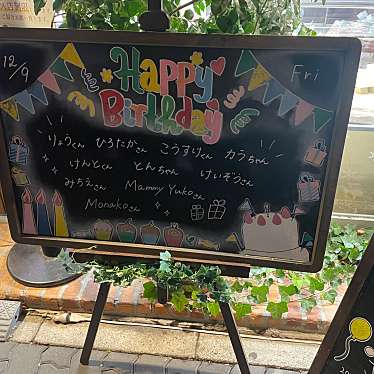 12/9
Fri
Happy
Birthday
りょうくん ひろたかさん こうすけくん カラちゃん
けんとくん とんちゃん けいぞうさん
みちえさん Mammy Yukoさん
Monakoさん